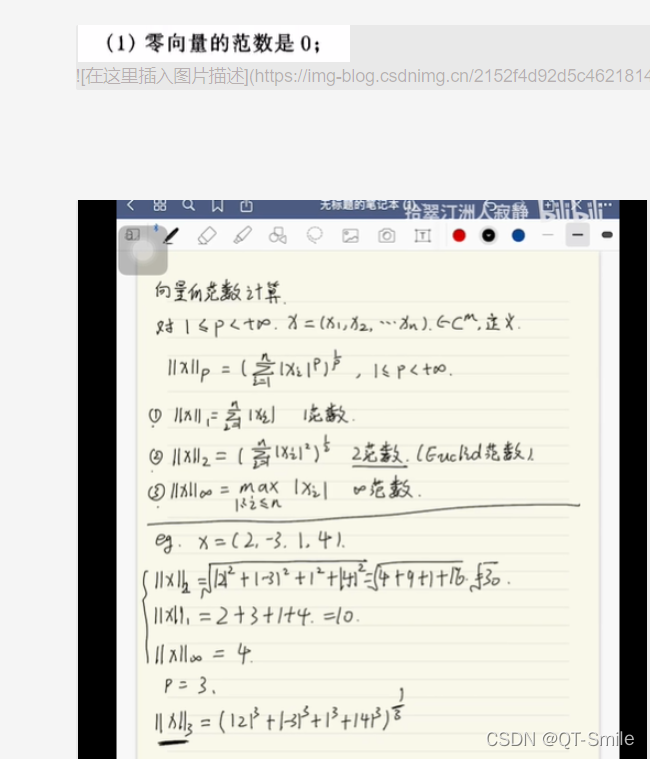 (1) 零向量的范数是 0;
![在这里插入图片描述](https://img-blog.csdnimg.cn/2152f4d92d5c4621814
无标题的笔记本 (1)
拾翠汀洲人寂静 bilibili
向量的范数计算.
对 1 ≤ p < +∞. X = (x₁, x₂, ⋯ xₙ). ∈ Cᵐ, 定义.
||X||p = (∑ᵢ₌₁ⁿ |xᵢ|ᵖ)^(1/p) , 1 ≤ p < +∞.
① ||X||₁ = ∑ᵢ₌₁ⁿ |xᵢ| 1范数.
② ||X||₂ = (∑ᵢ₌₁ⁿ |xᵢ|²)^(1/2) 2范数. (Euclid范数).
③ ||X||∞ = max 1≤i≤n |xᵢ| ∞范数.
eg. X = (2, -3. 1, 4).
||X||₂ = √(|2|² + |-3|² + 1² + |4|²) = √(4+9+1+16) = √30.
||X||₁ = 2+3+1+4. = 10.
||X||∞ = 4.
P = 3.
||X||₃ = (|2|³ + |-3|³ + 1³ + |4|³)^(1/3)
CSDN @QT-Smile